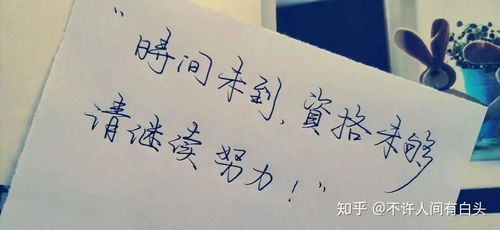 "時间未到,資格未够
请继续努力!"
知乎 @不许人间有白头